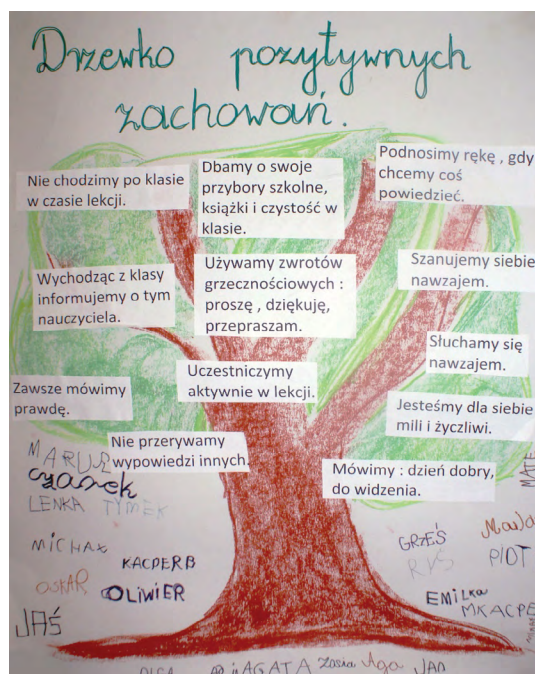 Drzewko pozytywnych
zachowań.
Nie chodzimy po klasie
w czasie lekcji.
Dbamy o swoje
przybory szkolne,
książki i czystość w
klasie.
Podnosimy rękę , gdy
chcemy coś
powiedzieć.
Wychodząc z klasy
informujemy o tym
nauczyciela.
Używamy zwrotów
grzecznościowych :
proszę , dziękuję,
przepraszam.
Szanujemy siebie
nawzajem.
Uczestniczymy
aktywnie w lekcji.
Słuchamy się
nawzajem.
Zawsze mówimy
prawdę.
Jesteśmy dla siebie
mili i życzliwi.
Nie przerywamy
wypowiedzi innych.
Mówimy : dzień dobry,
do widzenia.
LENKA TYMEK
MICHAŁ
KACPER B
OSKAR
OLIWIER
JAŚ
GRZEŚ
RYŚ
EMILKA
AGATA Zosia Aga JAN